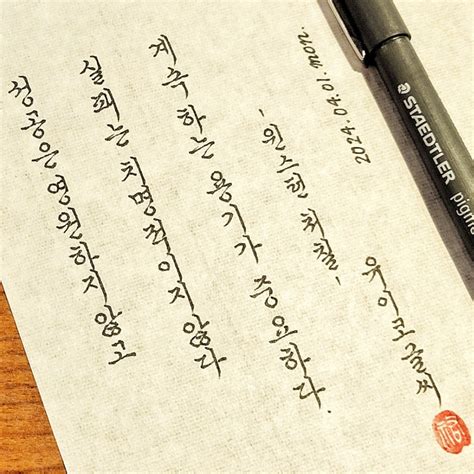 성공은 영원하지 않고
실패는 치명적이지 않다
계속 하는 용기가 중요하다.
- 윈스턴 처칠 -
2024. 04. 01. mon.
유이코글씨
STAEDTLER
pigm